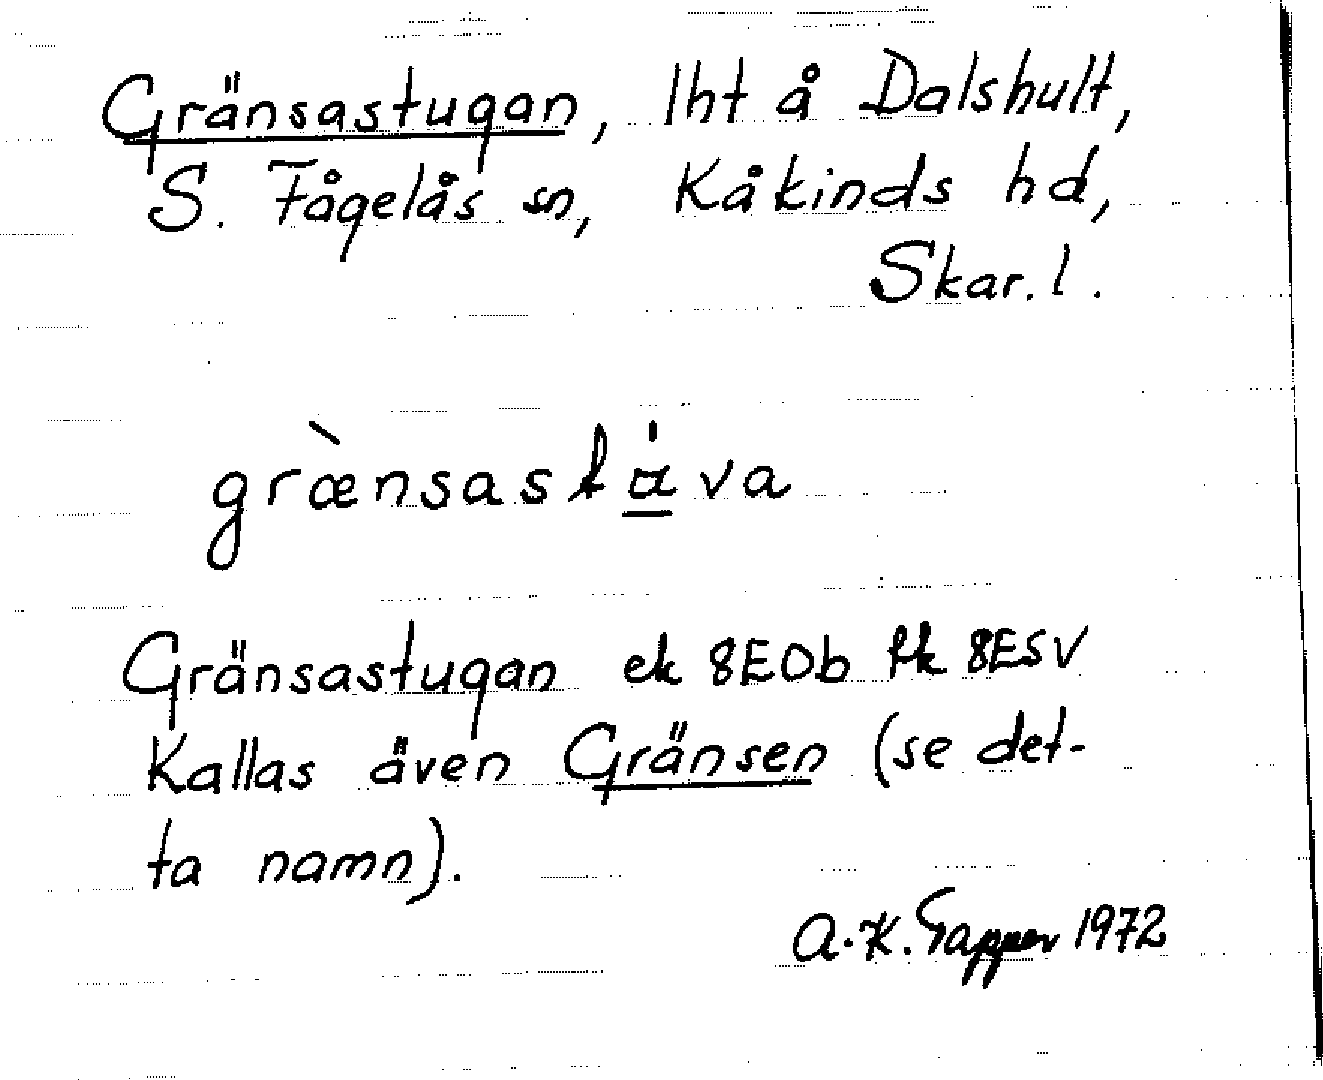 Gränsastugan, lht å Dalshult,
S. Fågelås sn, Kåkinds hd,
Skar. l.
græ̀nsastɑ̲́va
Gränsastugan ek 8E0b fk 8E5V
Kallas även Gränsen (se det-
ta namn).
A.K. Tapper 1972